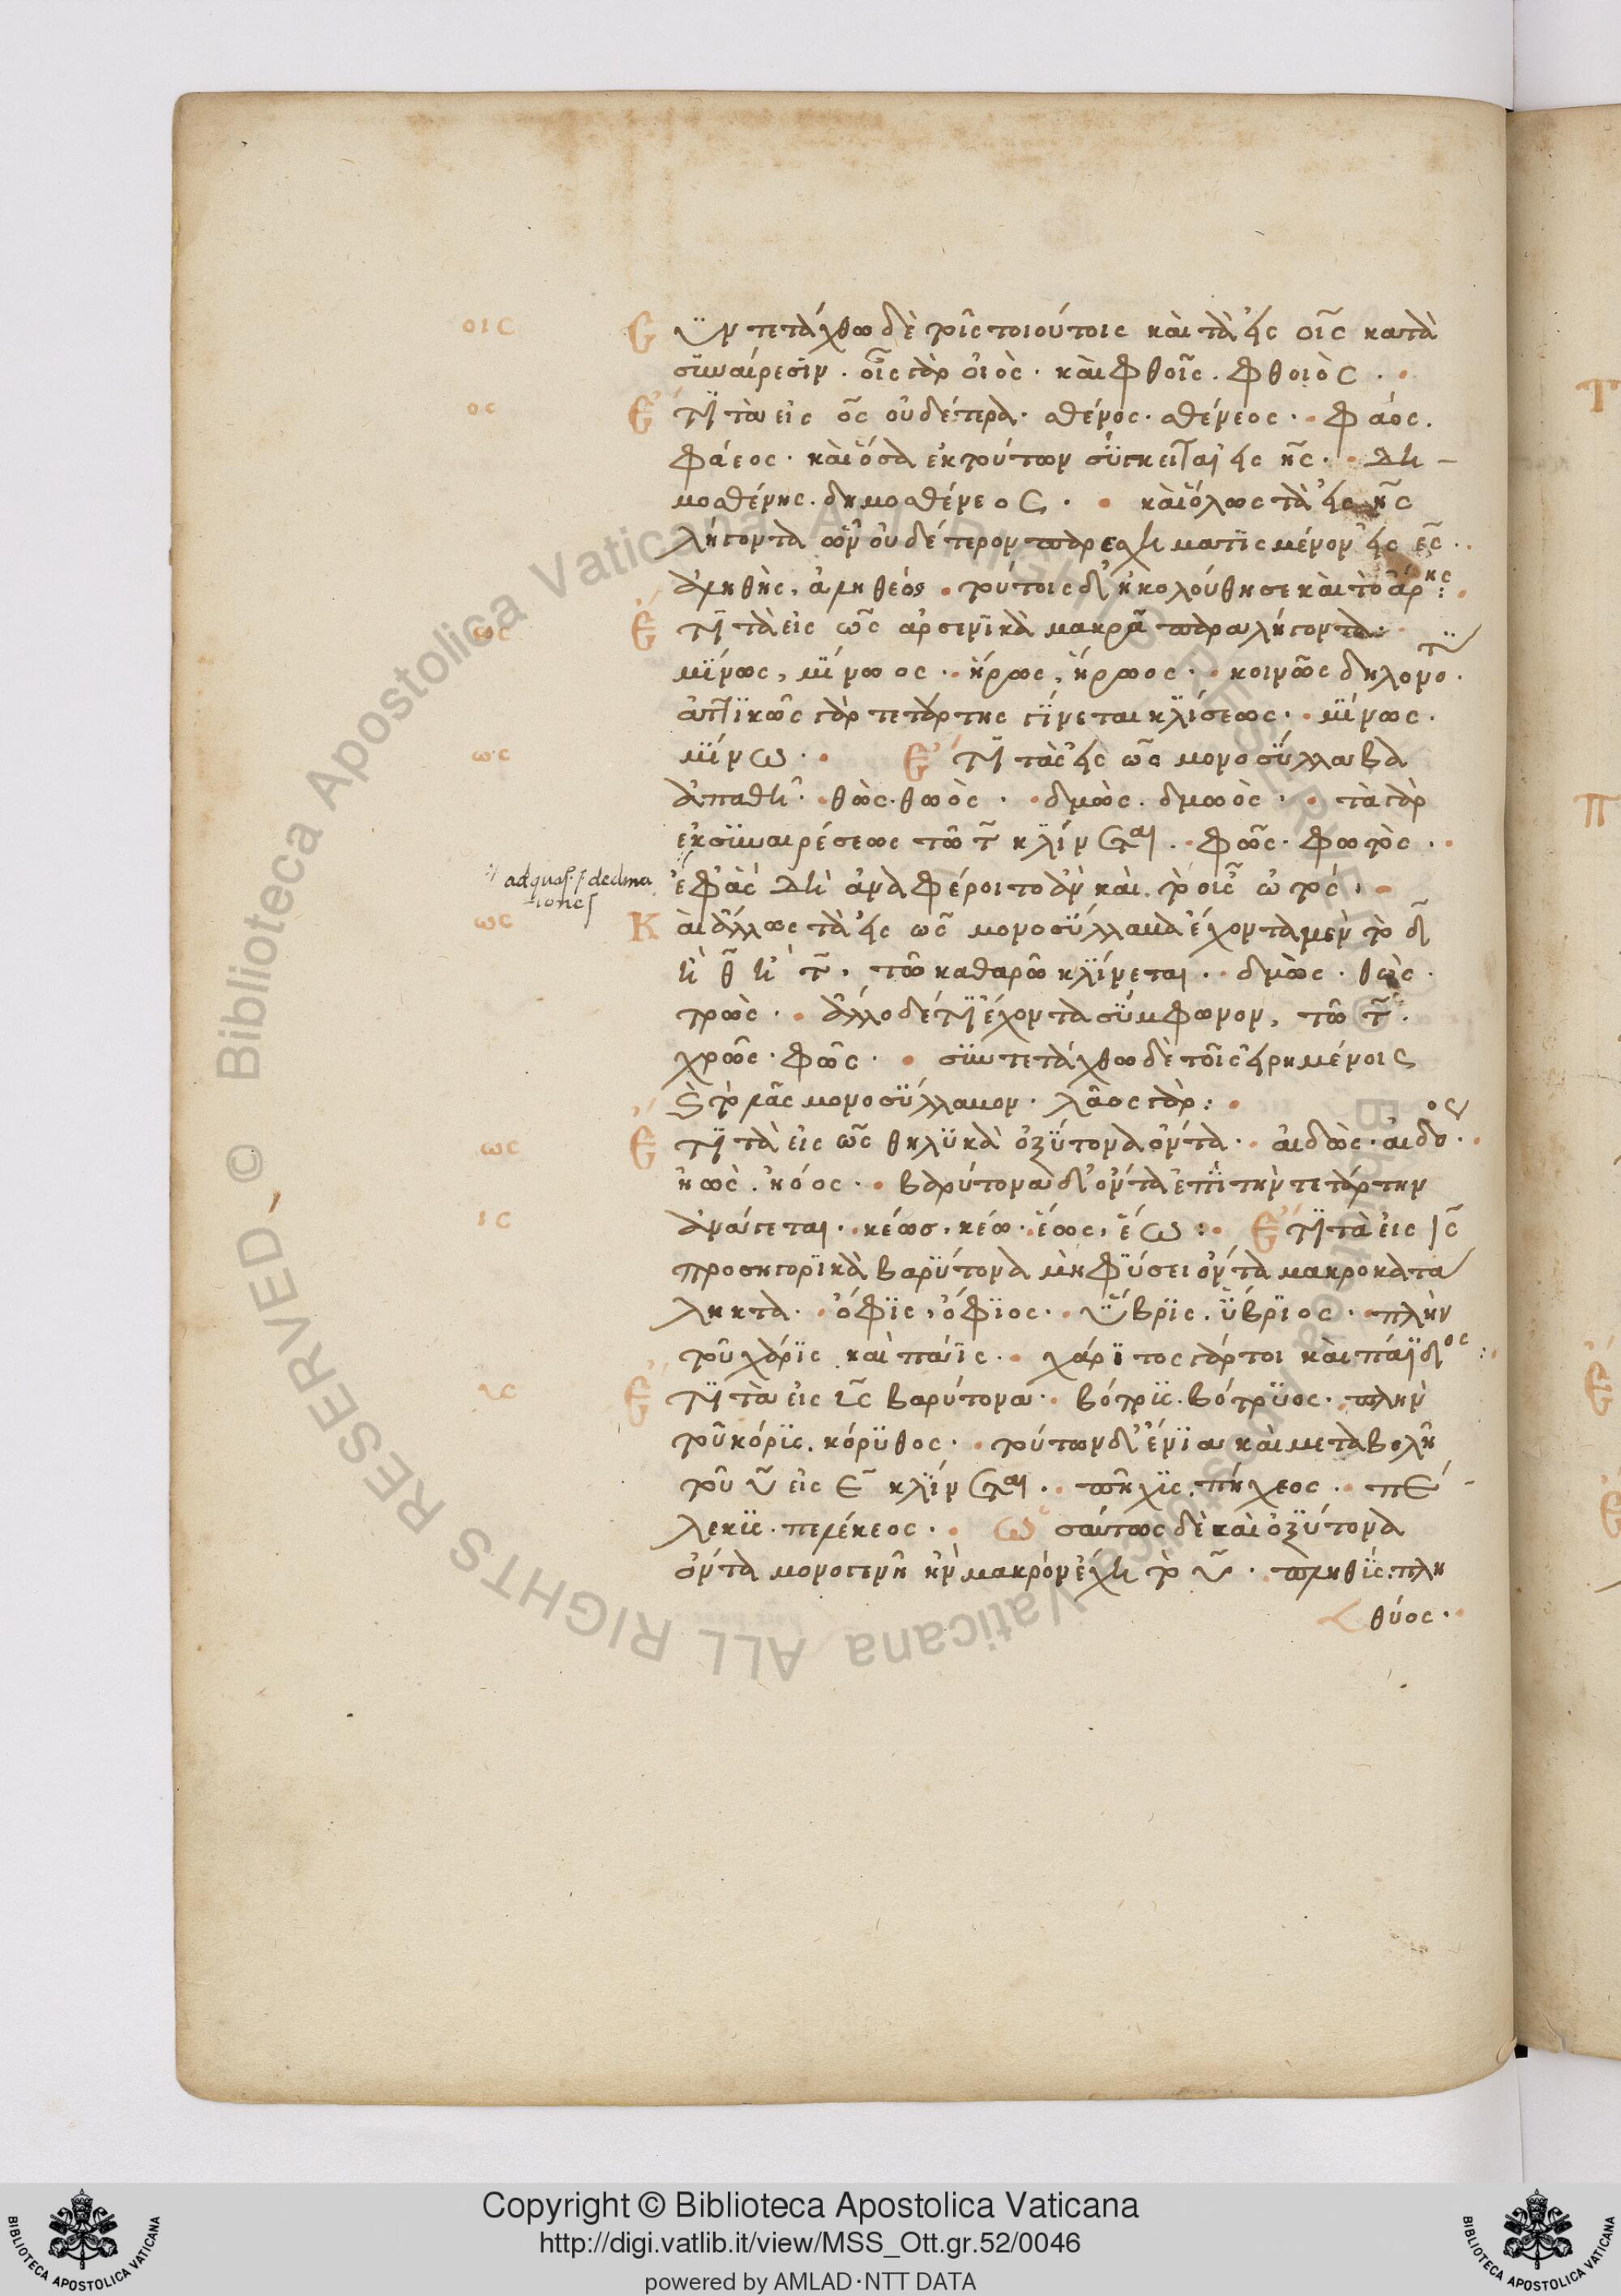 οις Ϲυντετάχθω δὲ τοῖς τοιούτοις καὶ τὰ εἰς οις κατὰ
συναίρεσιν · οἶς γὰρ οἰὸς · καὶ φθοῖς · φθοιὸς ·
ος Ἔτι τὰ εἰς ος οὐδέτερα · σθένος · σθένεος · φάος ·
φάεος · καὶ ὅσα ἐκ τούτων σύγκειται εἰς ης · Δη-
μοσθένης · δημοσθένεος · καὶ ὅλως τὰ εἰς ης
λήγοντα ὧν οὐδέτερον παρεσχηματισμένον εἰς ες ·
ἀληθὴς, ἀληθέος · τούτοις δ' ἠκολούθησε καὶ τὸ ἄρης :
ως Ἔτι τὰ εἰς ως ἀρσενικὰ μακρᾷ παραλήγοντα :
μίνως, μίνωος · ἥρως, ἥρωος · κοινῶς δηλονότι ·
ἀττικῶς γὰρ τετάρτης γίνεται κλίσεως · μίνως ·
ως μίνω · Ἔτι τὰ εἰς ως μονοσύλλαβα
ἀπαθῆ · θὼς · θωὸς · δμὼς · δμωὸς · τὰ γὰρ
ἐκ συναιρέσεως τῶ τ κλίνεται · φῶς · φωτὸς ·
ad quas declina
tiones
ως Καὶ ἄλλως τὰ εἰς ως μονοσύλλαβα ἔχοντα μὲν τὸ δ
ἢ θ ἢ τ, τῶ καθαρῶ κλίνεται · δμὼς · θὼς ·
τρώς · ἄλλο δέ τι ἔχοντα σύμφωνον, τῶ τ ·
χρῶς · φῶς · συντετάχθω δὲ τοῖς εἰρημένοις
καὶ τὸ λᾶς μονοσύλλαβον · λᾶος γὰρ :
ως Ἔτι τὰ εἰς ως θηλυκὰ ὀξύτονα ὄντα · αἰδὼς · αἰδόος ·
ἠὼς · ἠόος · βαρύτονα δ' ὄντα ἐπὶ τὴν τετάρτην
ις ἀνάγεται · κέως, κέω · ἕως, ἕω : Ἔτι τὰ εἰς ις
προσηγορικὰ βαρύτονα μὴ φύσει ὄντα μακροκατά
ληκτα · ὄφις, ὄφιος · ὕβρις · ὕβριος · πλὴν
τοῦ χάρις καὶ πάϊς · χάριτος γάρ τοι καὶ πάϊδος :
υς Ἔτι τὰ εἰς υς βαρύτονα · βότρυς · βότρυος · πλὴν
τοῦ κόρυς · κόρυθος · τούτων δ' ἔνια καὶ μεταβολῆ
τοῦ υ εἰς ε κλίνεται · πῆχυς · πήχεος · πέ-
λεκυς · πελέκεος · Ὡσαύτως δὲ καὶ ὀξύτονα
ὄντα μονογενῆ ἢν μακρὸν ἔχη τὸ υ · πληθὺς · πλη
θύος ·
Copyright © Biblioteca Apostolica Vaticana
http://digi.vatlib.it/view/MSS_Ott.gr.52/0046
powered by AMLAD·NTT DATA